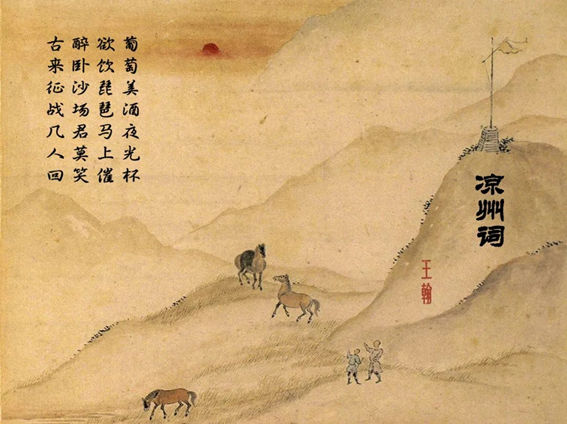 凉州词
王翰
葡萄美酒夜光杯
欲饮琵琶马上催
醉卧沙场君莫笑
古来征战几人回